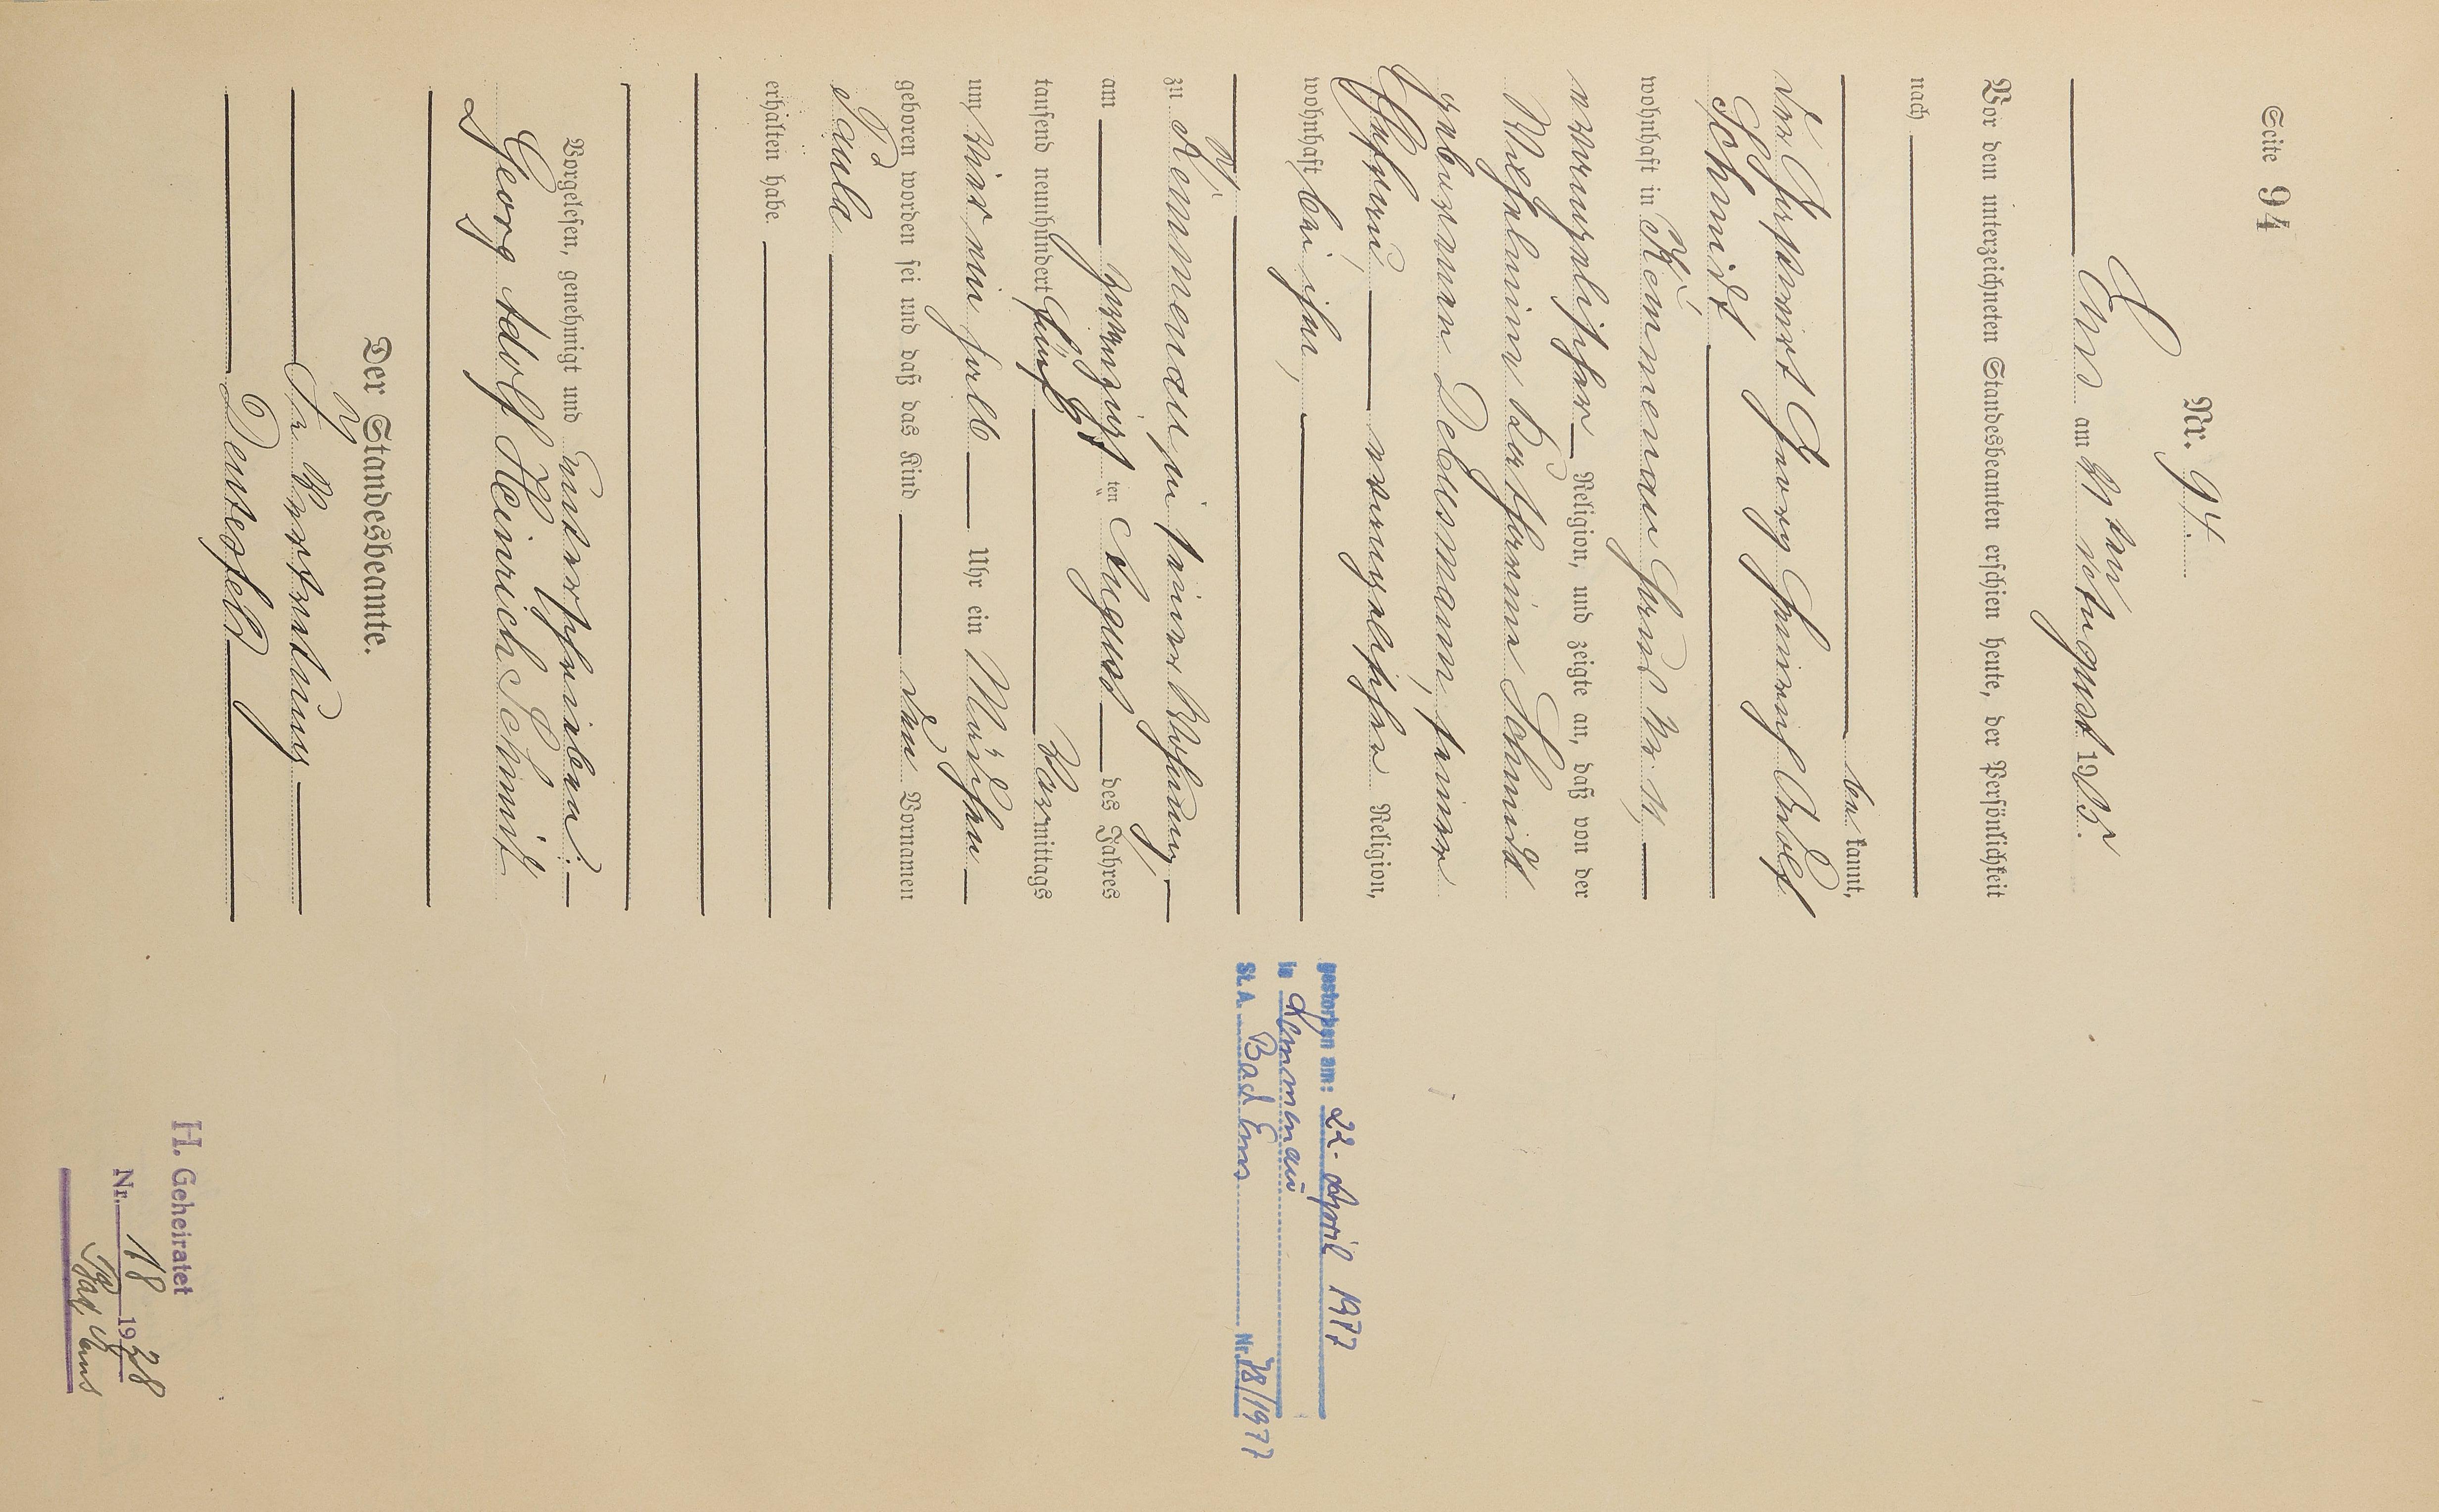 Seite 94
Nr. 94.
Ems am 21 ten August 1905.
Vor dem unterzeichneten Standesbeamten erschien heute, der Persönlichkeit
nach
be kannt,
der Georg Heinrich Adolf
Schmidt
wohnhaft in Kemmenau
evangelischer Religion, und zeigte an, daß von der
Wilhelmine Katharina Schmidt
geborenen Debusmann, seiner
Ehefrau evangelischer Religion,
wohnhaft bei ihm,
zu Kemmenau in seiner Wohnung,
am zwanzigsten August des Jahres
tausend neunhundert fünf Vormittags
um vier ein halb Uhr ein Mädchen
geboren worden sei und daß das Kind den Vornamen
Paula
erhalten habe.
Vorgelesen, genehmigt und unterschrieben:
Georg Adolf Heinrich Schmidt
Der Standesbeamte.
In Vertretung
gestorben am: 22. April 1977
in Kemmenau
St. A. Bad Ems Nr. 78/1977
H. Geheiratet
Nr. 18 1928
Bad Ems